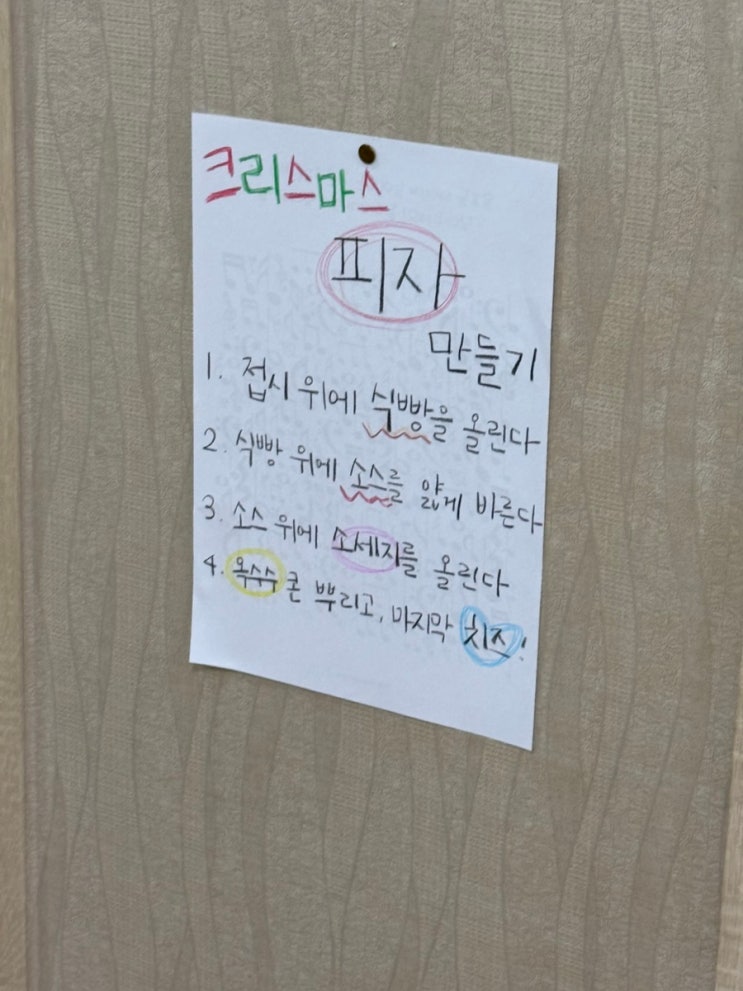 크리스마스
피자
만들기
1. 접시 위에 식빵을 올린다
2. 식빵 위에 소스를 얇게 바른다
3. 소스 위에 소세지를 올린다
4. 옥수수 콘 뿌리고, 마지막 치즈!